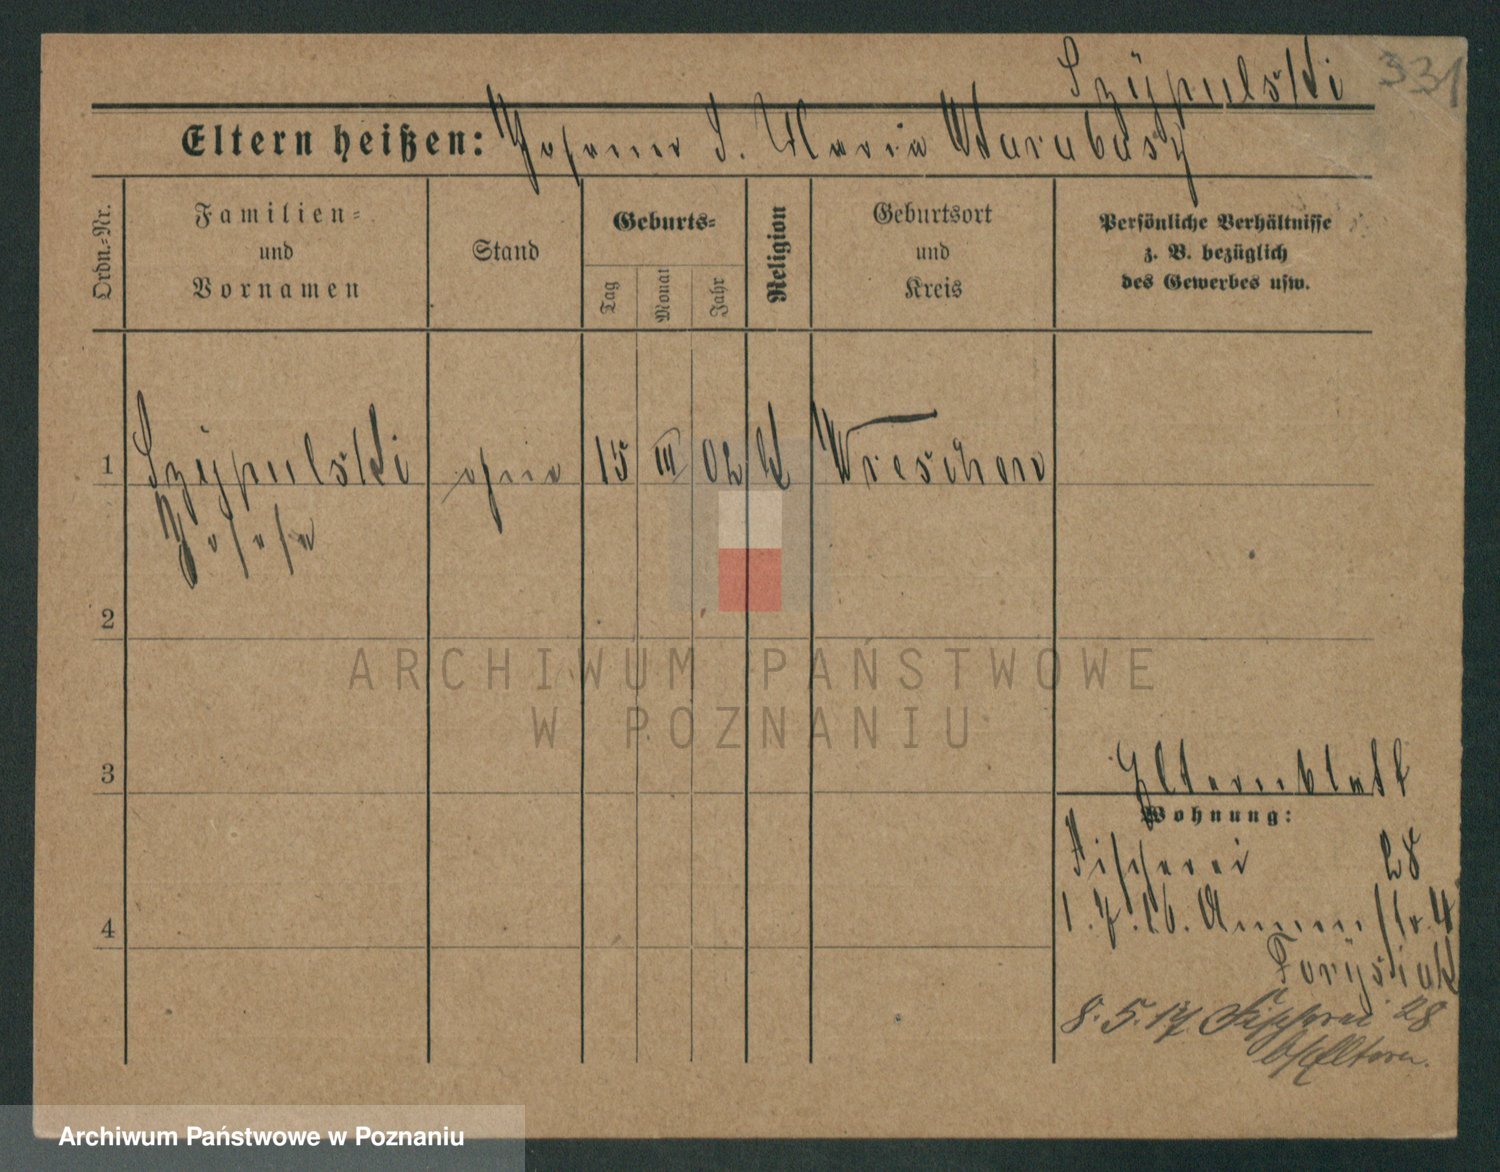 Szÿpulski
331
Eltern heißen: Johann u. Maria Warabasz
Ordn.=Nr.
Familien=
und
Vornamen
Stand
Geburts=
Tag
Monat
Jahr
Religion
Geburtsort
und
Kreis
Persönliche Verhältnisse
z. B. bezüglich
des Gewerbes usw.
1 Szÿpulski ohne 15 III 02 k Wreschen
Josefa
2
ARCHIWUM PAŃSTWOWE
W POZNANIU
3
Elternblatt
Wohnung:
Fischerei 28
1.7.16. Annenstr. 4
4
Torÿsiak
8.5.17. Fischerei 28
b/Eltern.
Archiwum Państwowe w Poznaniu